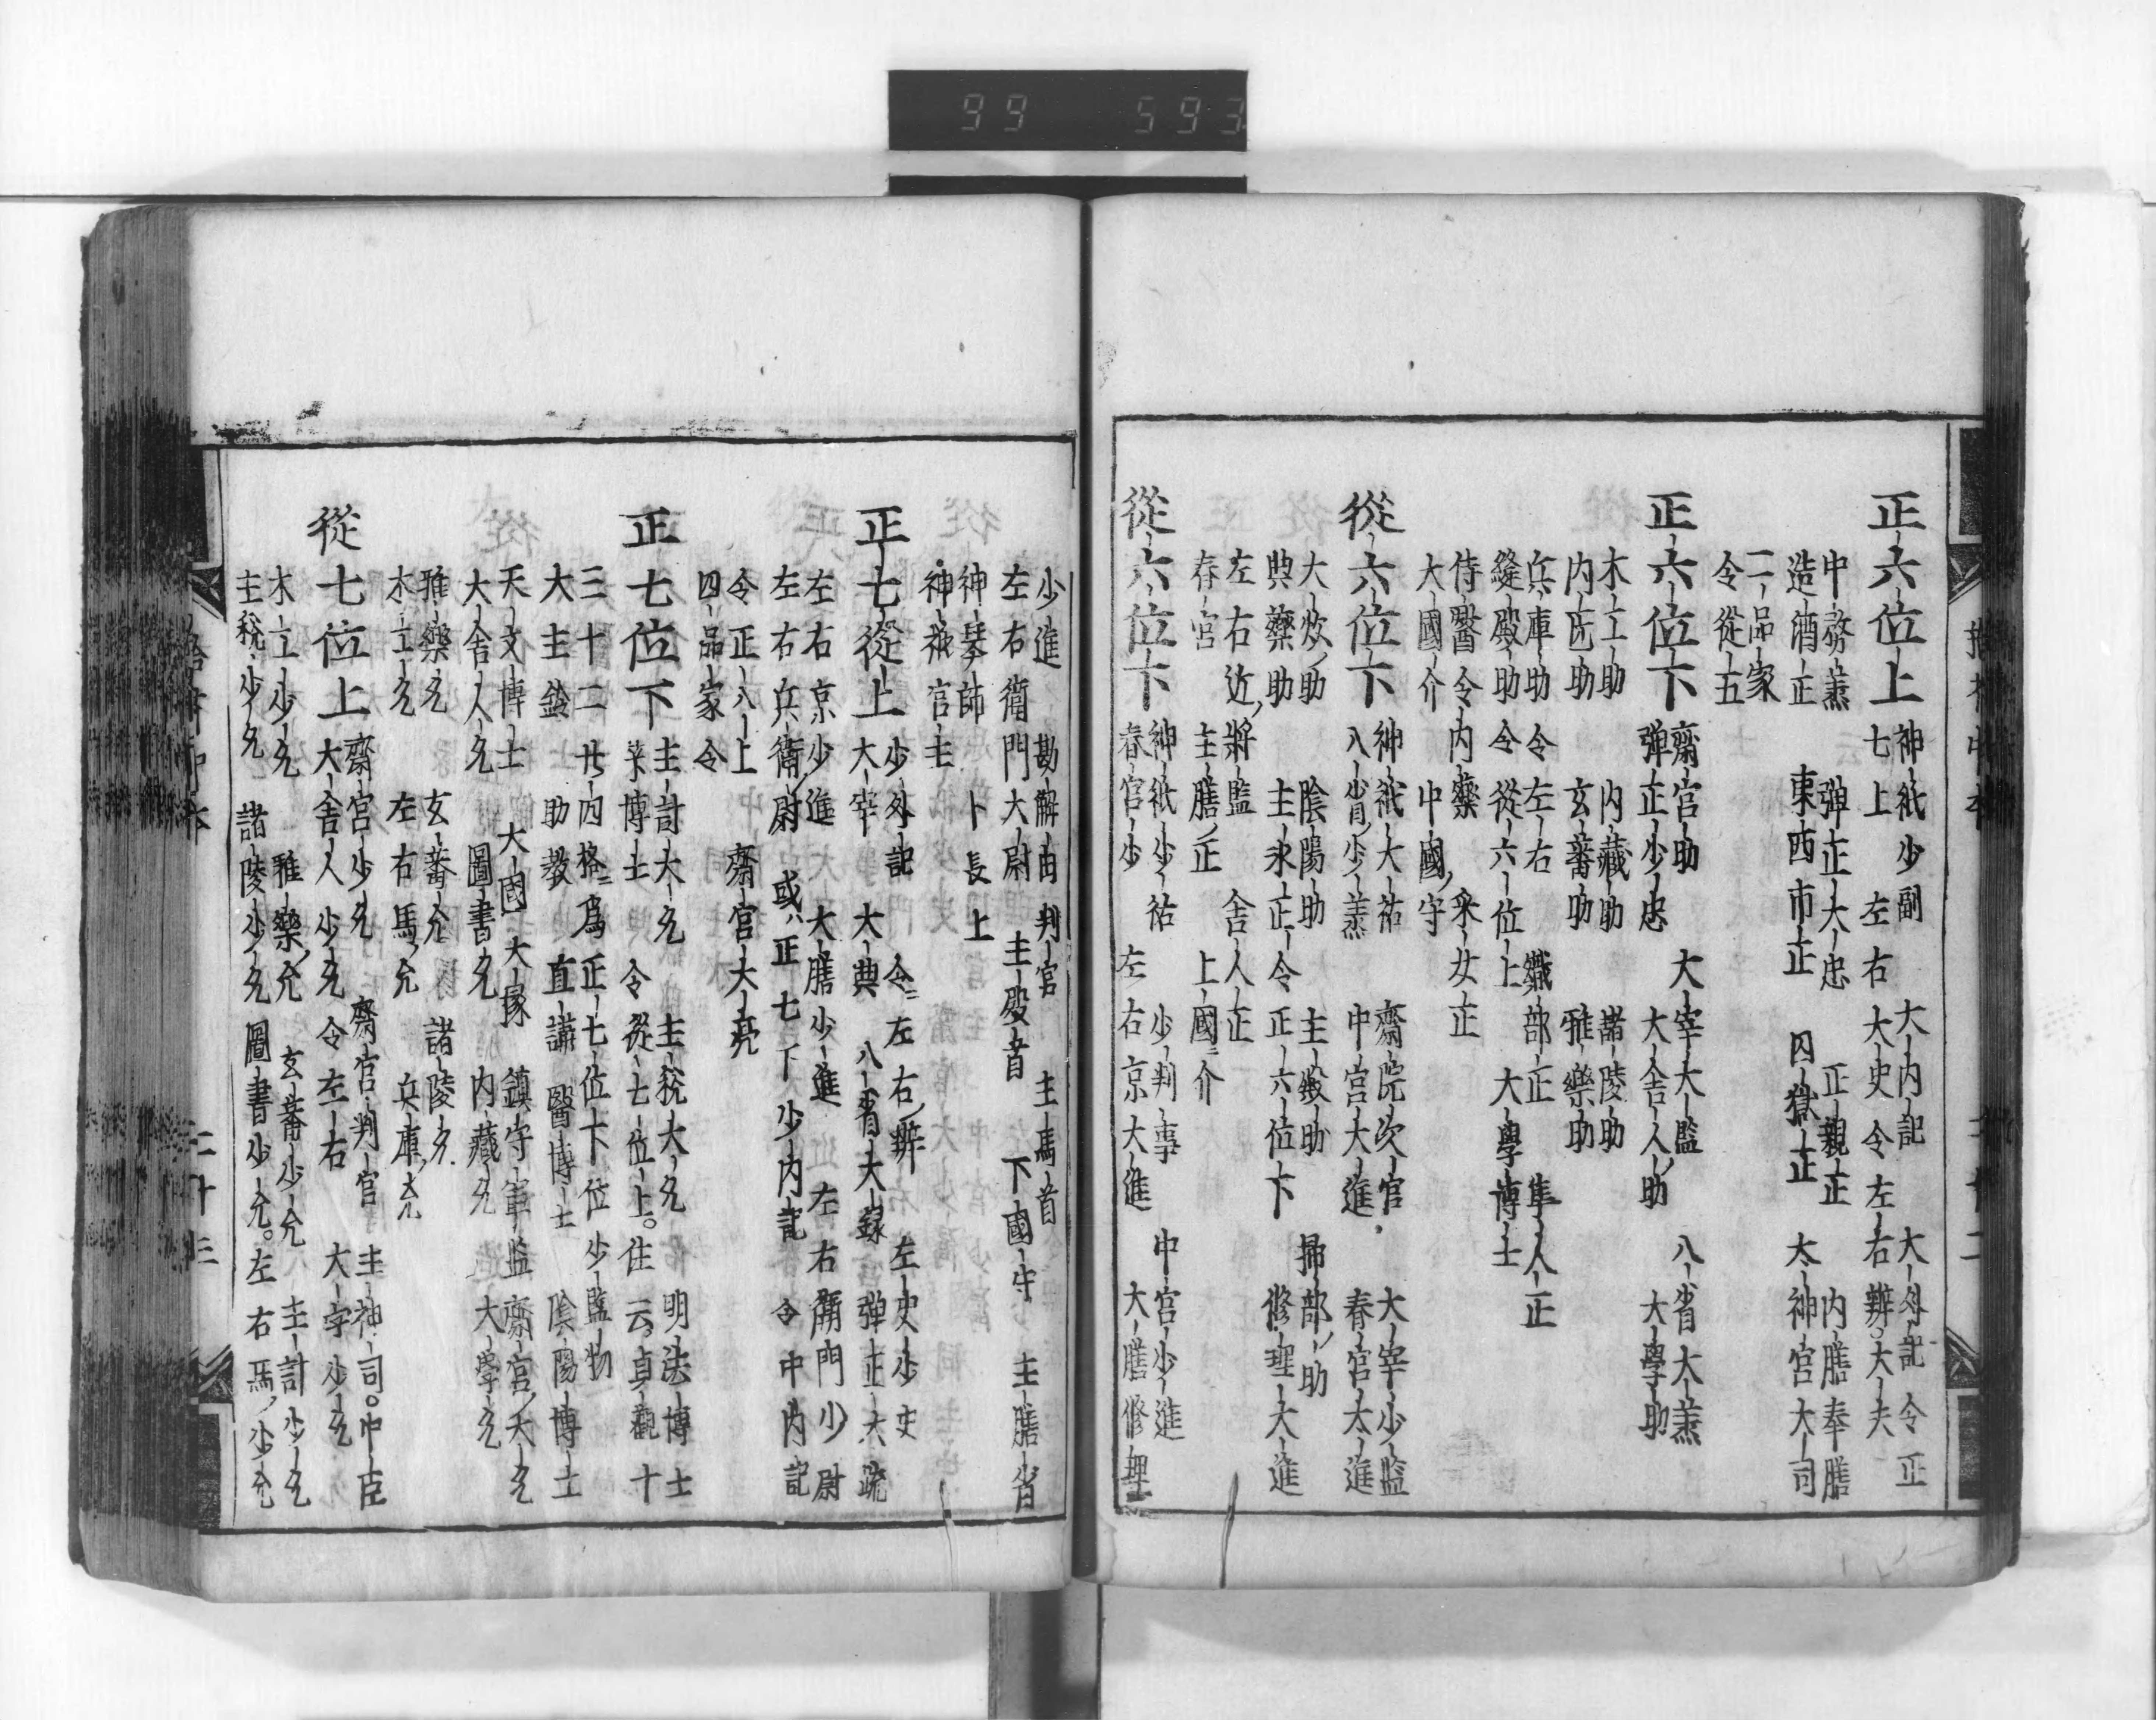 99 593
正六位上
神祇少副 大内記 大外記 令正
七上 左右大史 令左右辨大夫
中務少丞 彈正大忠 正親正 内膳奉膳
造酒正 東西市正 囚獄正 太神宮大司
一品家
令從五
正六位下
齋宮助 大宰大監 八省大丞
彈正少忠 大舍人助 大學助
木工助 内藏助 諸陵助
内匠助 玄蕃助 雅樂助
兵庫助 令左右 織部正 隼人正
縫殿助 令從六位上 大學博士
侍醫 令内藥 采女正
大國介 中國守
從六位下
神祇大祐 齋院次官 大宰少監
八省少丞 中宮大進 春宮大進
大炊助 陰陽助 主殿助 掃部助
典藥助 主水正 令正六位下 修理大進
左右近將監 舍人正
春宮 主膳正 上國介
從六位下
神祇少祐 少判事 中宮少進
春宮少 左右京大進 大膳修理
少進 勘解由判官 主馬首
左右衛門大尉 主殿首 下國守 主膳首
神琴師 卜長上
神祇官主
正七從上
少外記 令左右辨 左史少史
大宰大典 八省大録 彈正大疏
左右京少進 大膳少進 左右衛門少尉
左右兵衛尉 或正七下少内記 令中内記
令正八上 齋宮大允
四品家令
正七位下
主計大允 主税大允 明法博士
筭博士 令從七位上。住云貞觀十
三十二廿四格ニ爲正七位下位 少監物
大主鈴 助教 直講 醫博士 陰陽博士
天文博士 大國大掾 鎮守軍監 齋宮大允
大舍人允 圖書允 内藏允 造大學允
雅樂允 玄蕃允 諸陵允
木工允 左右馬允 兵庫允
從七位上
齋宮少允 齋宮判官 主神司。中臣
大舍人少允 令左右 大宰少允
木工少允 雅樂允 玄蕃少允 主計少允
主税少允 諸陵少允 圖書少允。左右馬少允
二十三